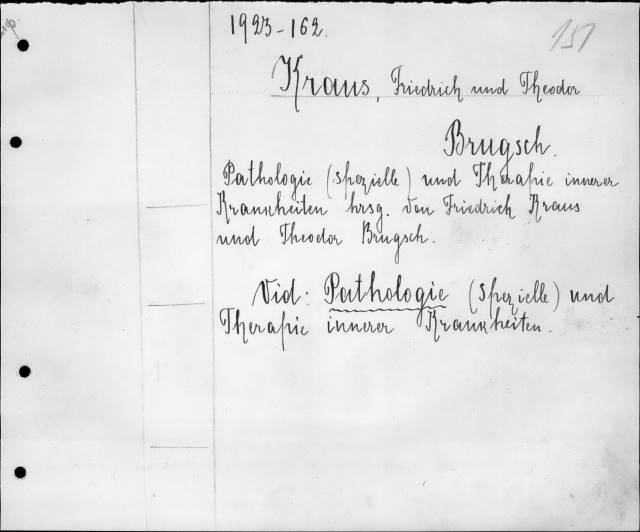 1923-162.
151
Kraus, Friedrich und Theodor
Brugsch.
Pathologie (spezielle) und Therapie innerer
Krankheiten hrsg. von Friedrich Kraus
und Theodor Brugsch.
Vid: Pathologie (spezielle) und
Therapie innerer Krankheiten.